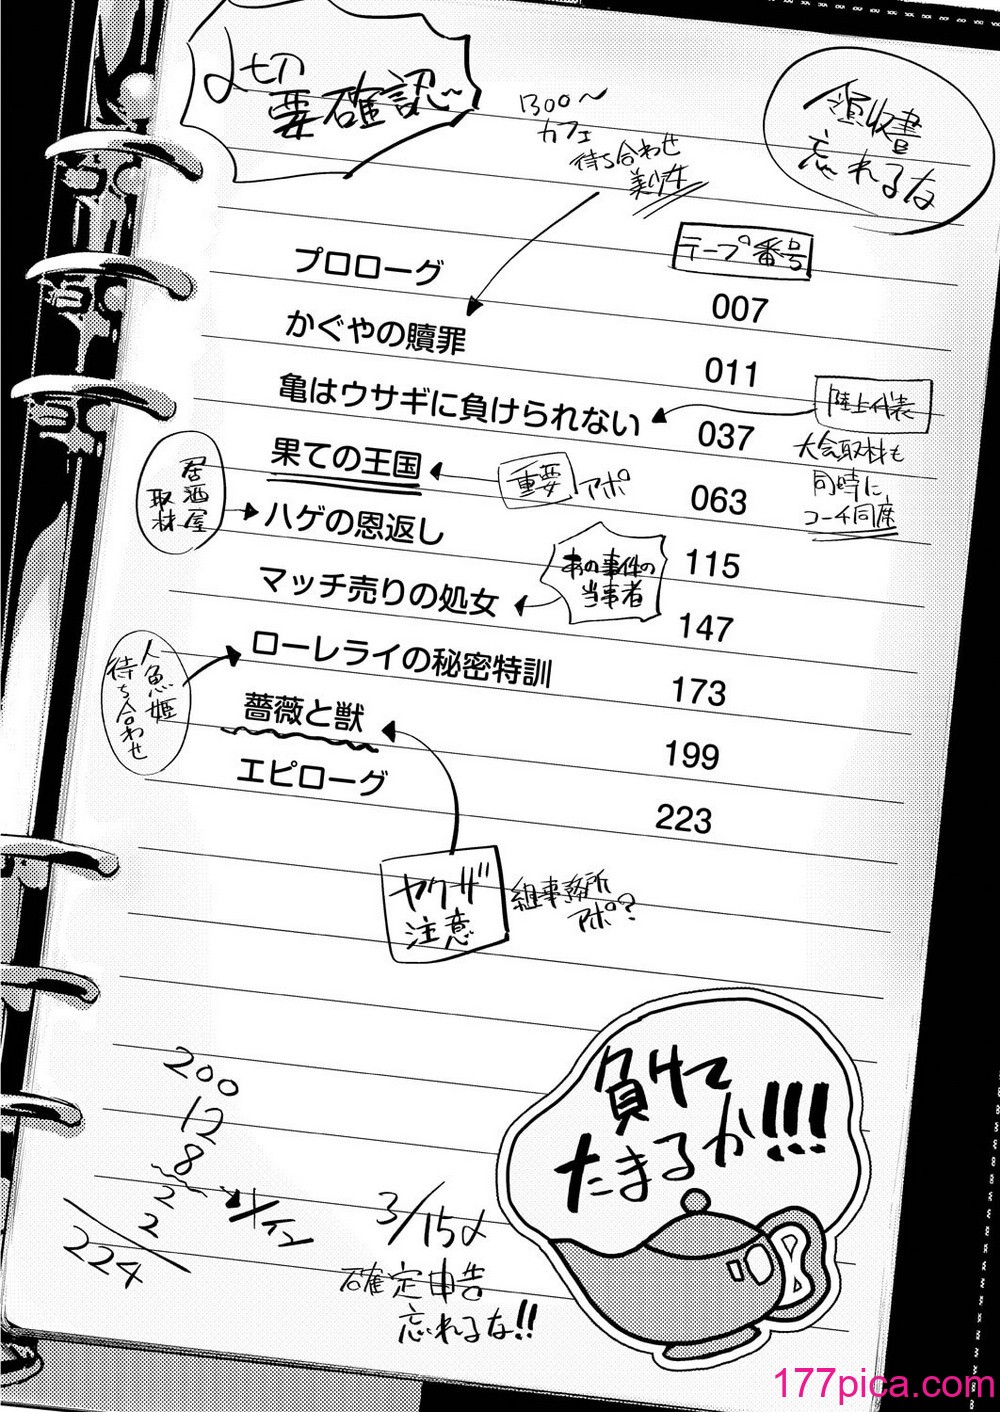 〆切
要確認
1300〜
カフェ
待ち合わせ
美少女
領収書
忘れるな
テープ番号
プロローグ 007
かぐやの贖罪 011
亀はウサギに負けられない 037
陸上代表
大会取材も
同時に
コーチ同席
果ての王国 063
重要 アポ
居酒屋
取材
ハゲの恩返し 115
あの事件の
当事者
マッチ売りの処女 147
人魚姫
待ち合わせ
ローレライの秘密特訓 173
薔薇と獣 199
エピローグ 223
ヤクザ
注意
組事務所
アポ?
200
12
8
2
2
224
3/15〆
確定申告
忘れるな!!
負けて
たまるか!!!
177pica.com